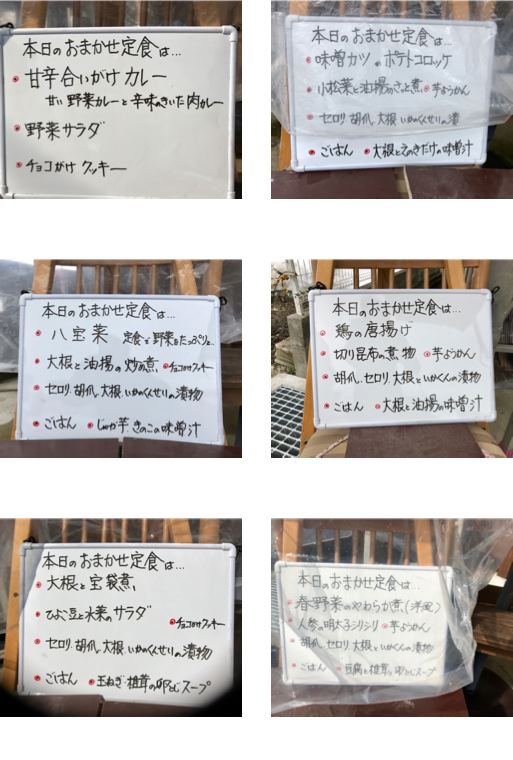 本日のおまかせ定食は…
甘辛合いがけカレー
甘い野菜カレーと辛味のきいた肉カレー
野菜サラダ
チョコがけクッキー
本日のおまかせ定食は…
味噌カツ ポテトコロッケ
小松菜と油揚のさっと煮 芋ようかん
セロリ 胡瓜 大根 いかのくんせいの漬
ごはん 大根とえのきだけの味噌汁
本日のおまかせ定食は…
八宝菜 定食で野菜をたっぷりと…
大根と油揚の炒め煮 チョコがけクッキー
セロリ 胡瓜 大根 いかのくんせいの漬物
ごはん じゃが芋 きのこの味噌汁
本日のおまかせ定食は…
鶏の唐揚げ
切り昆布の煮物 芋ようかん
胡瓜 セロリ 大根といかくんの漬物
ごはん 大根と油揚の味噌汁
本日のおまかせ定食は…
大根と宝袋煮
ひよこ豆と水菜のサラダ
チョコがけクッキー
セロリ 胡瓜 大根 いかのくんせいの漬物
ごはん 玉ねぎ 椎茸の卵とじスープ
本日のおまかせ定食は…
春野菜のやわらか煮(洋風)
人参の明太子シリシリ 芋ようかん
胡瓜 セロリ 大根といかくんの漬物
ごはん 豆腐と椎茸の卵とじスープ